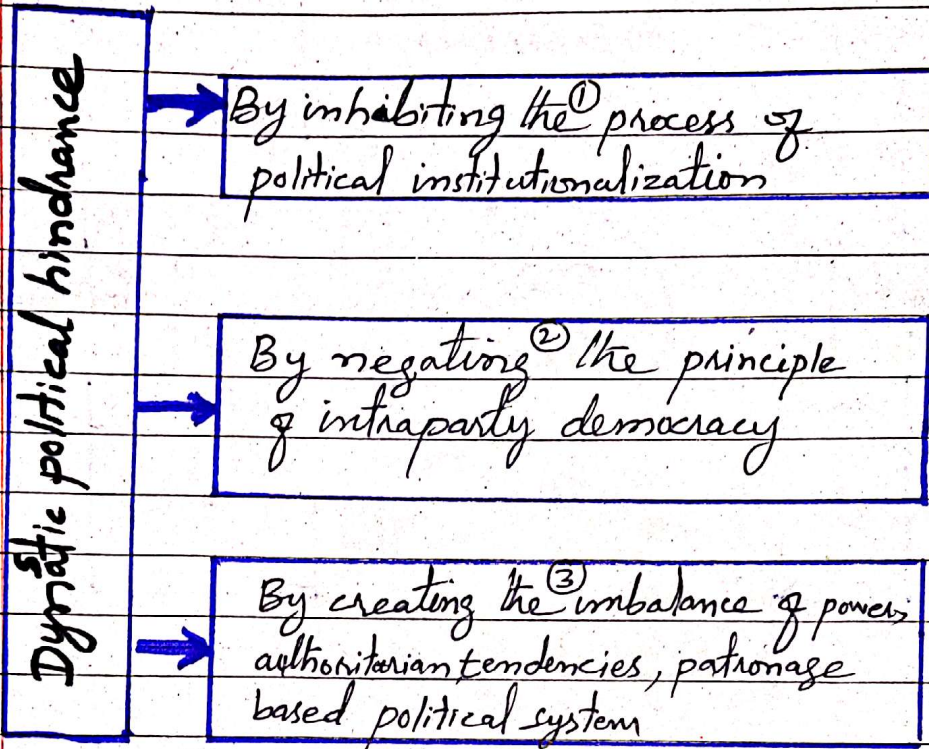 Dynastic political hindrance
①
By inhibiting the process of
political institutionalization
②
By negating the principle
of intraparty democracy
③
By creating the imbalance of powers,
authoritarian tendencies, patronage
based political system